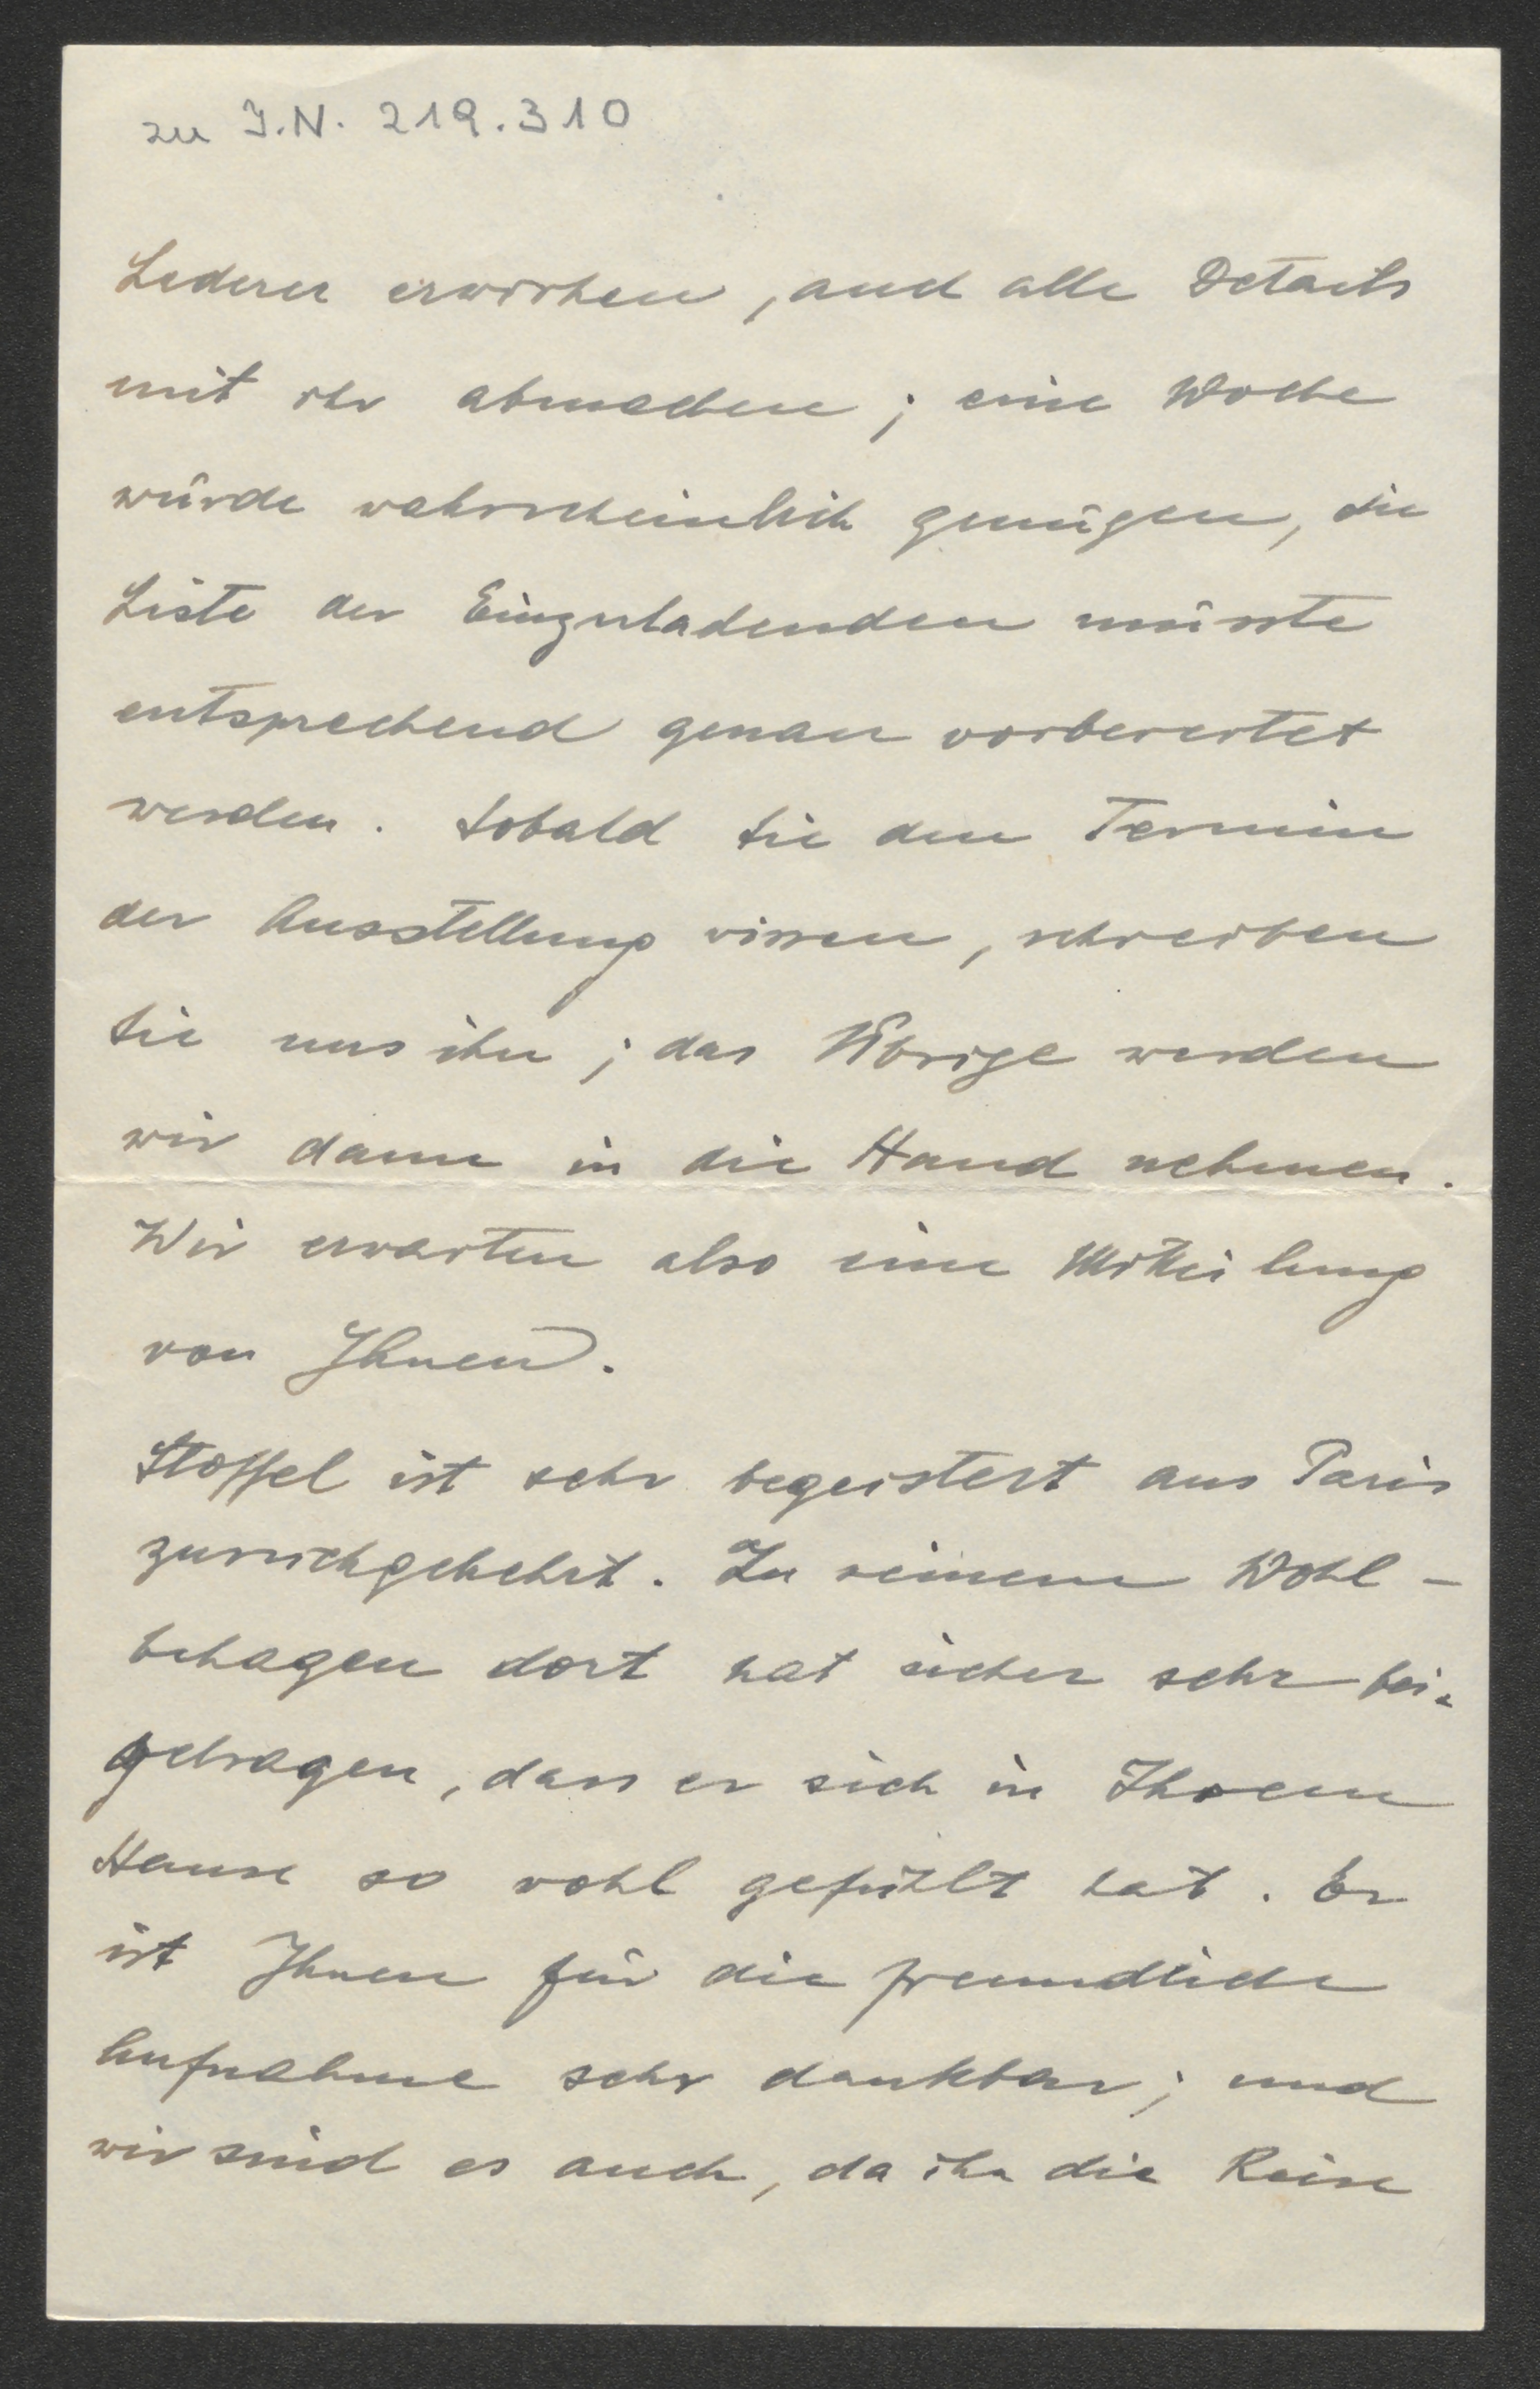 zu I.N. 219.310
Lederer erwirken, und alle Details
mit ihr abmachen; eine Woche
würde wahrscheinlich genügen, die
Liste der Einzuladenden müsste
entsprechend genau vorbereitet
werden. Sobald Sie den Termin
der Ausstellung wissen, schreiben
Sie uns ihn; das Übrige werden
wir dann in die Hand nehmen.
Wir erwarten also eine Mitteilung
von Ihnen.
Stoffel ist sehr begeistert aus Paris
zurückgekehrt. Zu seinem Wohl-
behagen dort hat sicher sehr bei-
getragen, dass er sich in Ihrem
Hause so wohl gefühlt hat. Er
ist Ihnen für die freundliche
Aufnahme sehr dankbar; und
wir sind es auch, da ihn die Reise